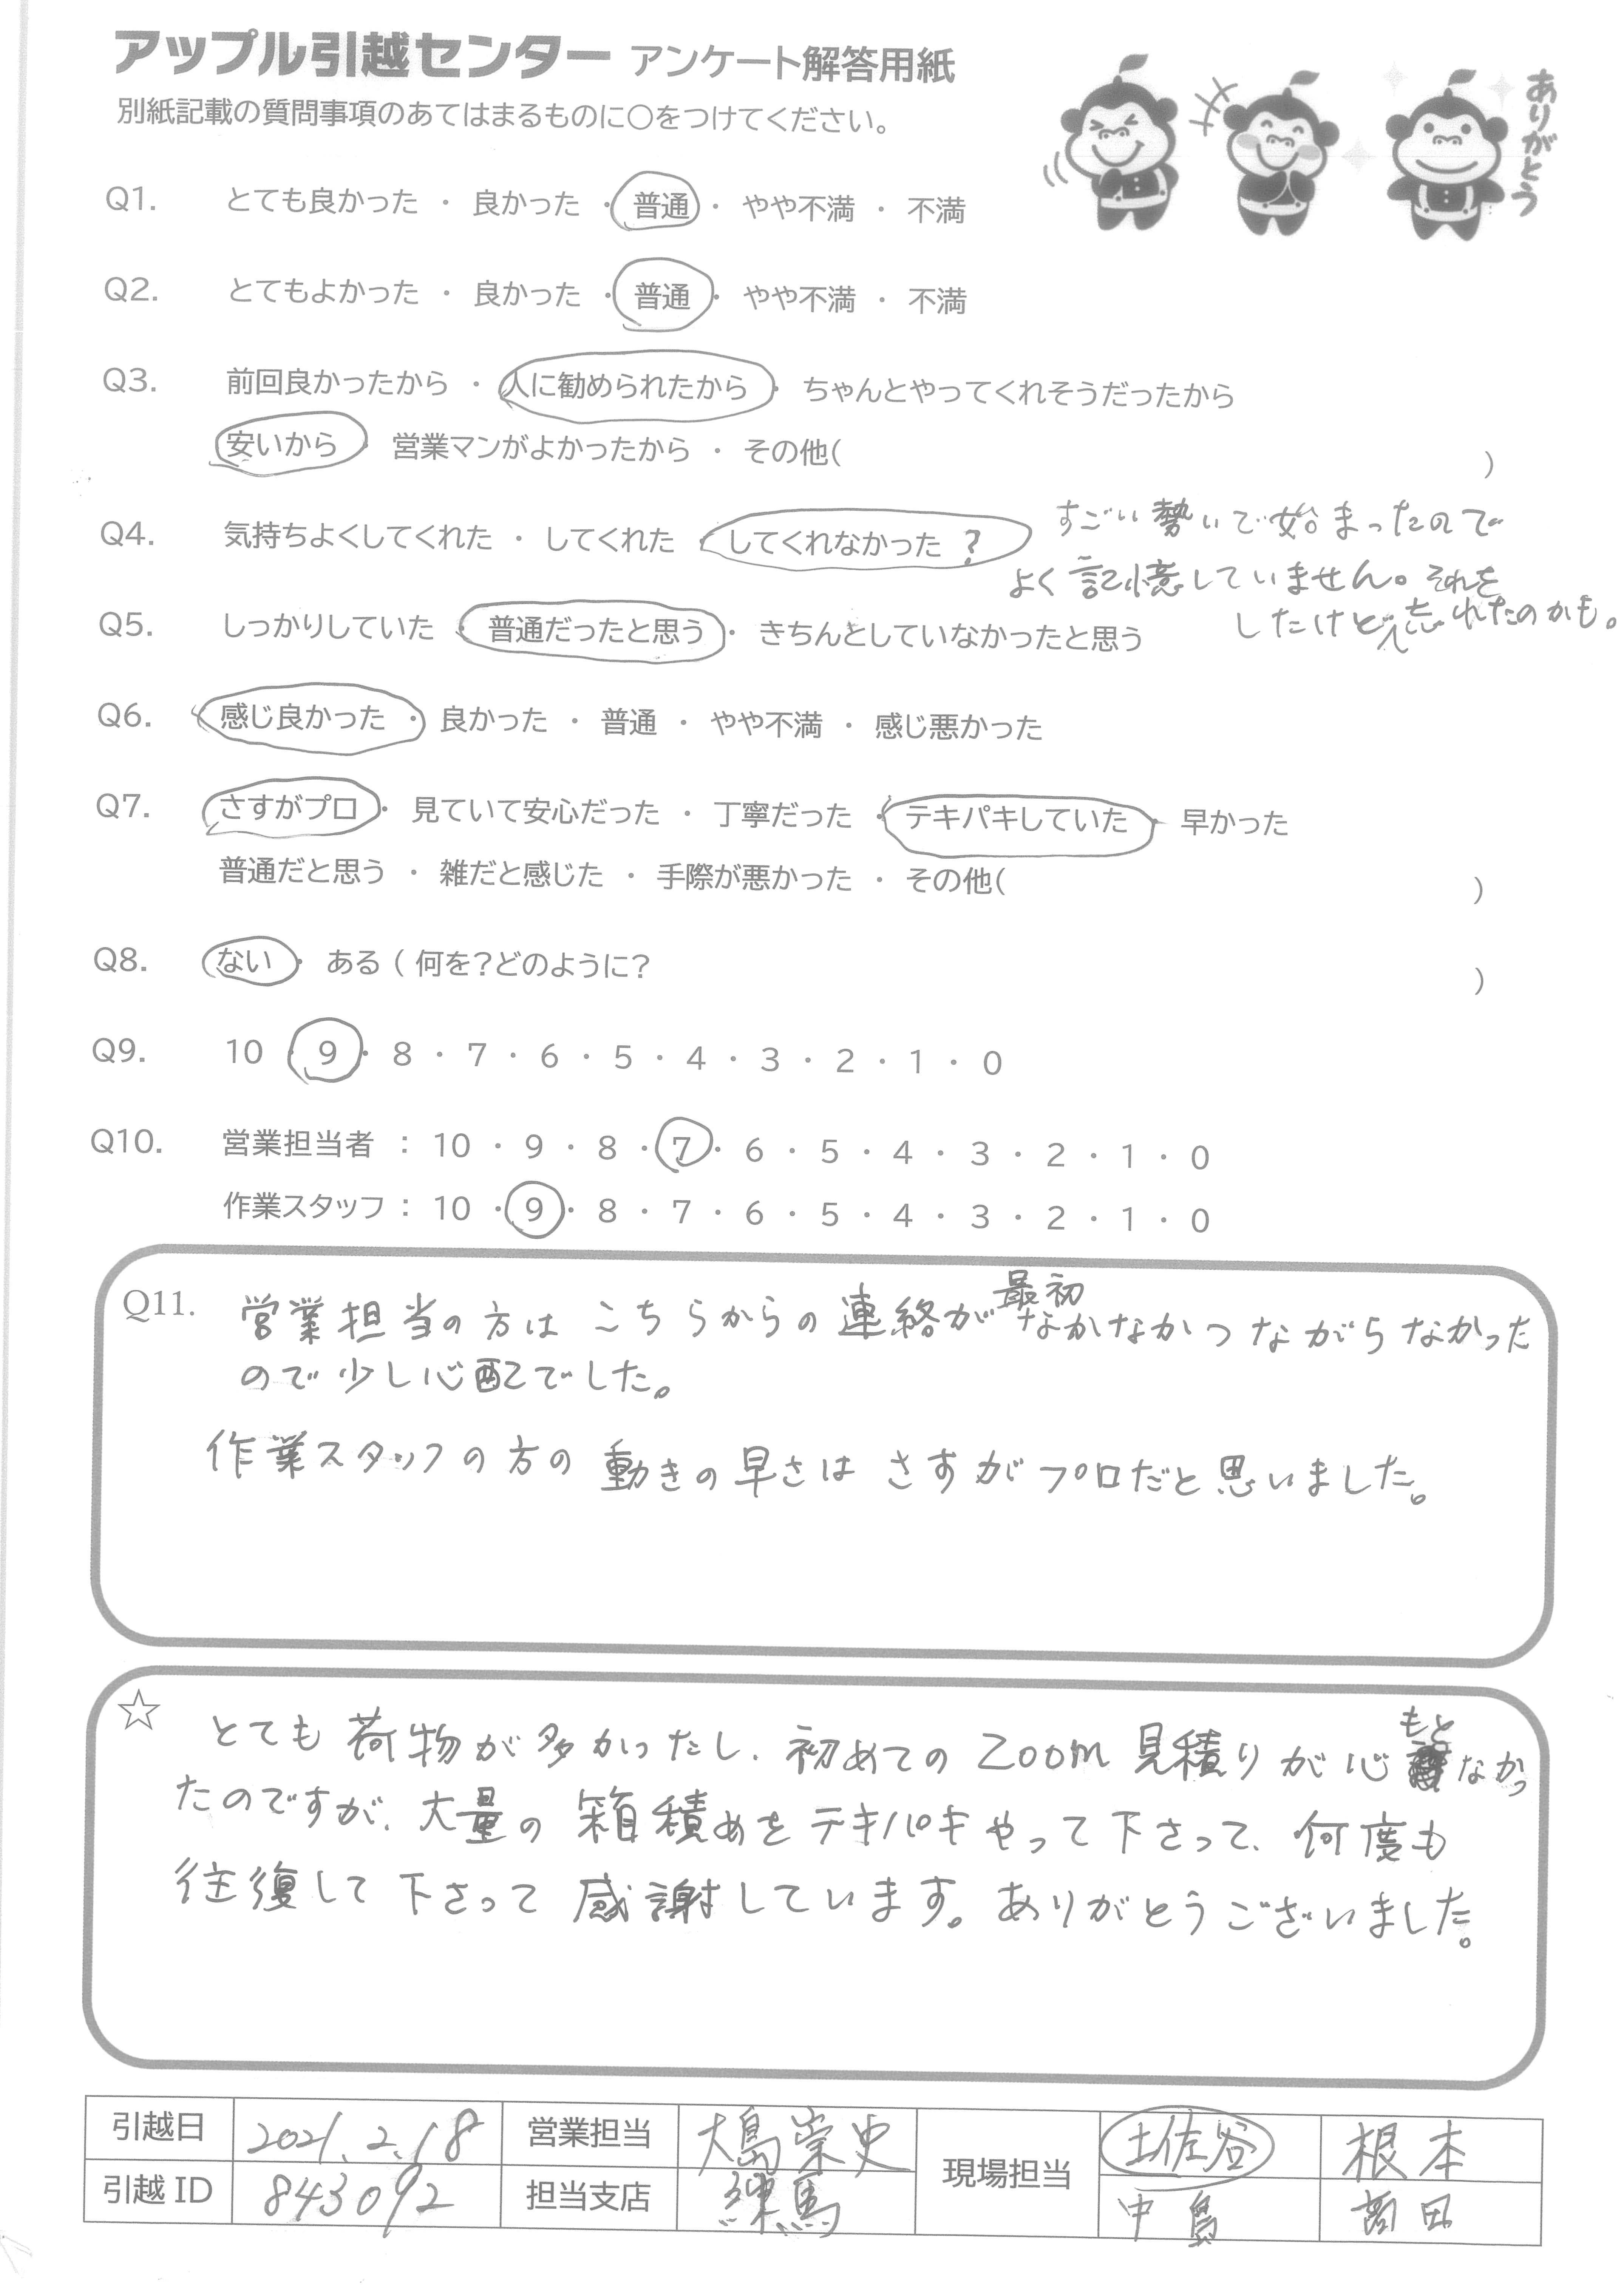 アップル引越センター アンケート解答用紙
別紙記載の質問事項のあてはまるものに〇をつけてください。
ありがとう
Q1. とても良かった ・ 良かった ・ 普通 ・ やや不満 ・ 不満
Q2. とてもよかった ・ 良かった ・ 普通 ・ やや不満 ・ 不満
Q3. 前回良かったから ・ 人に勧められたから ・ ちゃんとやってくれそうだったから
安いから ・ 営業マンがよかったから ・ その他( )
Q4. 気持ちよくしてくれた ・ してくれた ・ してくれなかった ?
すごい勢いで始まったので
よく記憶していません。それを
したけど忘れたのかも。
Q5. しっかりしていた ・ 普通だったと思う ・ きちんとしていなかったと思う
Q6. 感じ良かった ・ 良かった ・ 普通 ・ やや不満 ・ 感じ悪かった
Q7. さすがプロ ・ 見ていて安心だった ・ 丁寧だった ・ テキパキしていた ・ 早かった
普通だと思う ・ 雑だと感じた ・ 手際が悪かった ・ その他( )
Q8. ない ・ ある ( 何を?どのように? )
Q9. 10 ・ 9 ・ 8 ・ 7 ・ 6 ・ 5 ・ 4 ・ 3 ・ 2 ・ 1 ・ 0
Q10. 営業担当者 : 10 ・ 9 ・ 8 ・ 7 ・ 6 ・ 5 ・ 4 ・ 3 ・ 2 ・ 1 ・ 0
作業スタッフ : 10 ・ 9 ・ 8 ・ 7 ・ 6 ・ 5 ・ 4 ・ 3 ・ 2 ・ 1 ・ 0
Q11. 営業担当の方は こちらからの連絡が最初なかなかつながらなかった
ので少し心配でした。
作業スタッフの方の動きの早さは さすがプロだと思いました。
☆ とても荷物が多かったし、初めてのZoom見積りが心もとなかっ
たのですが、大量の箱積めをテキパキやって下さって、何度も
往復して下さって感謝しています。ありがとうございました。
引越日 2021.2.18 営業担当 大島崇史 現場担当 土佐谷 根本
引越ID 843092 担当支店 練馬 中島